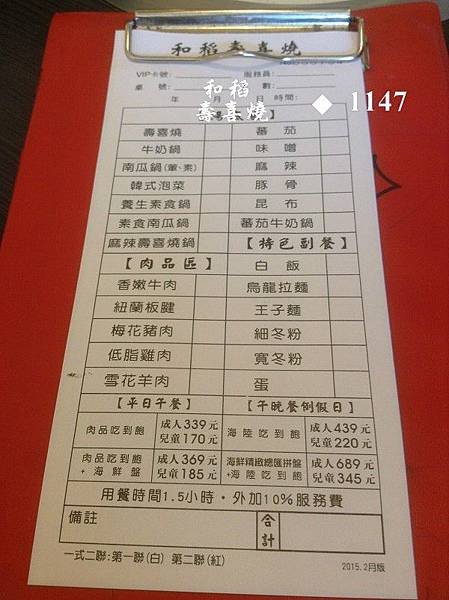 和稻壽喜燒
VIP卡號： 服務員：
桌 號： 數：
年 月 日 時間：
和稻
壽喜燒 ◆ 1147
壽喜燒 蕃 茄
牛奶鍋 味 噌
南瓜鍋(葷、素) 麻 辣
韓式泡菜 豚 骨
養生素食鍋 昆 布
素食南瓜鍋 蕃茄牛奶鍋
麻辣壽喜燒鍋 【特色副餐】
【肉品區】 白 飯
香嫩牛肉 烏龍拉麵
紐蘭板腱 王子麵
梅花豬肉 細冬粉
低脂雞肉 寬冬粉
雪花羊肉 蛋
【平日午餐】 【午晚餐例假日】
肉品吃到飽 成人339元 兒童170元 海陸吃到飽 成人439元 兒童220元
肉品吃到飽 +海鮮盤 成人369元 兒童185元 海鮮精緻總匯拼盤 +海陸吃到飽 成人689元 兒童345元
用餐時間1.5小時・外加10%服務費
備註 合計
一式二聯:第一聯(白) 第二聯(紅) 2015.2月版